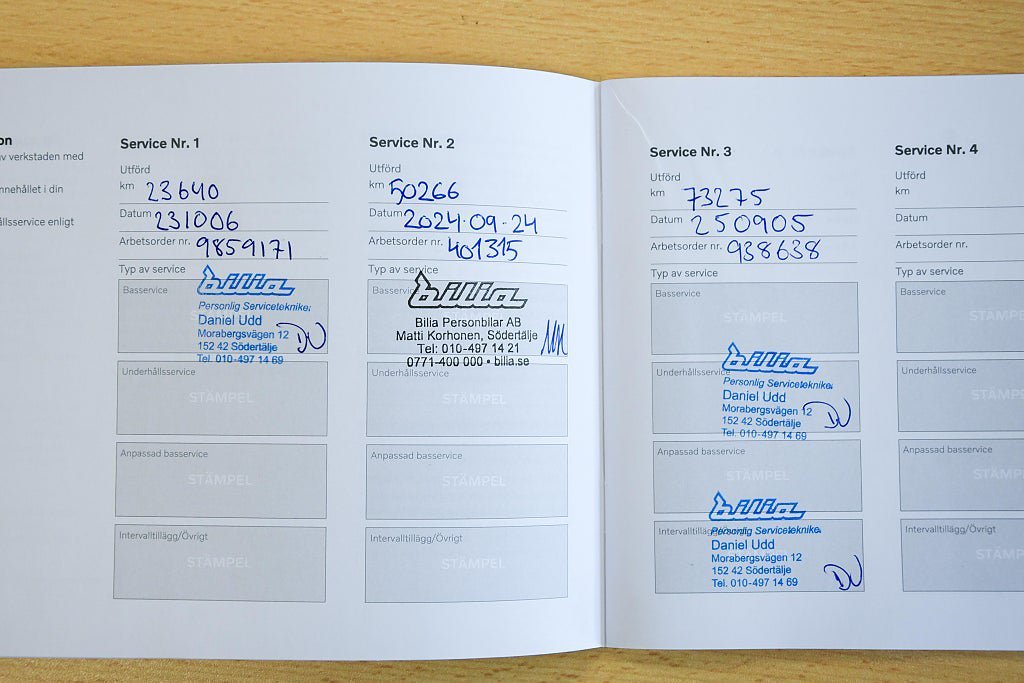 on
av verkstaden med
nnehållet i din
ållsservice enligt
Service Nr. 1
Utförd
km 23640
Datum 231006
Arbetsorder nr. 9859171
Typ av service
Basservice
bilia
Personlig Servicetekniker
Daniel Udd
Morabergsvägen 12
152 42 Södertälje
Tel. 010-497 14 69
DU
Underhållsservice
STÄMPEL
Anpassad basservice
STÄMPEL
Intervalltillägg/Övrigt
STÄMPEL
Service Nr. 2
Utförd
km 50266
Datum 2024-09-24
Arbetsorder nr. 401315
Typ av service
Basservice
bilia
Bilia Personbilar AB
Matti Korhonen, Södertälje
Tel: 010-497 14 21
0771-400 000 • bilia.se
Underhållsservice
STÄMPEL
Anpassad basservice
STÄMPEL
Intervalltillägg/Övrigt
STÄMPEL
Service Nr. 3
Utförd
km 73275
Datum 250905
Arbetsorder nr. 938638
Typ av service
Basservice
STÄMPEL
Underhållsservice
bilia
Personlig Servicetekniker
Daniel Udd
Morabergsvägen 12
152 42 Södertälje
Tel. 010-497 14 69
DU
Anpassad basservice
STÄMPEL
Intervalltillägg/Övrigt
bilia
Personlig Servicetekniker
Daniel Udd
Morabergsvägen 12
152 42 Södertälje
Tel. 010-497 14 69
DU
Service Nr. 4
Utförd
km
Datum
Arbetsorder nr.
Typ av service
Basservice
STÄMPE
Underhållsservice
STÄMP
Anpassad basservice
STÄMP
Intervalltillägg/Övrigt
STÄMP